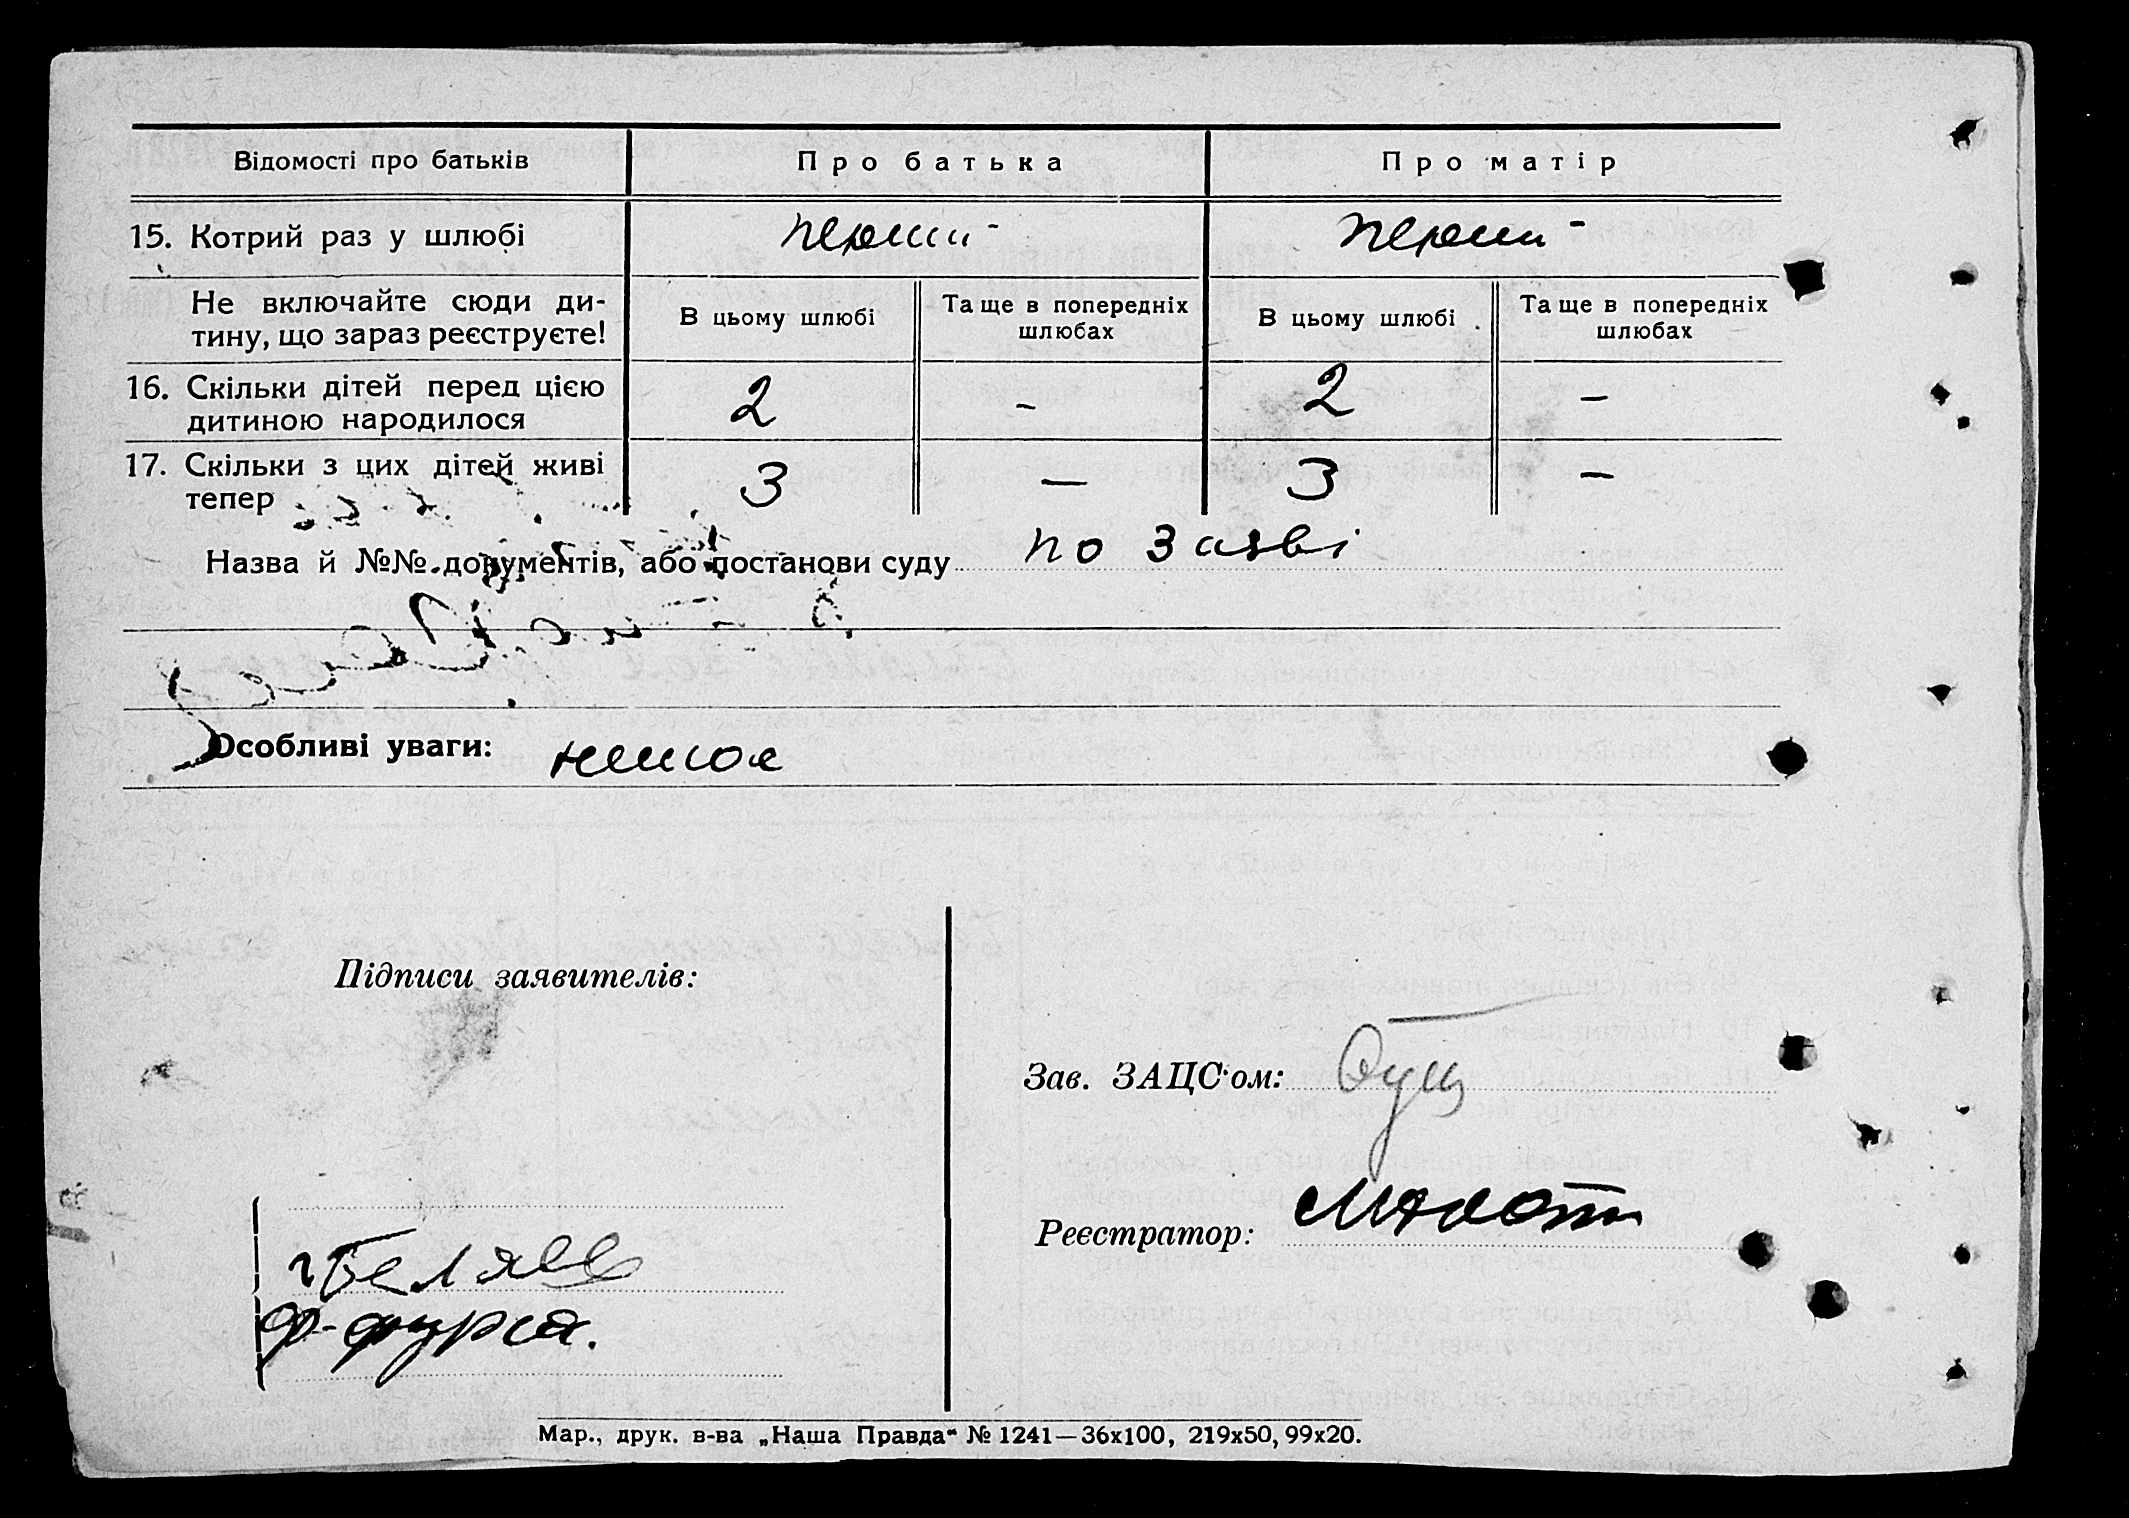 Відомості про батьків Про батька Про матір
15. Котрий раз у шлюбі перший перший
Не включайте сюди ди-
тину, що зараз реєструєте!
В цьому шлюбі
Та ще в попередніх
шлюбах
В цьому шлюбі
Та ще в попередніх
шлюбах
16. Скільки дітей перед цією
дитиною народилося
2 - 2 -
17. Скільки з цих дітей живі
тепер
3 - 3 -
Назва й №№ документів, або постанови суду по заяві
Особливі уваги: немає
Підписи заявителів:
Зав. ЗАЦС'ом:
Реєстратор:
Ф. фурса.
Мар., друк. в-ва „Наша Правда“ № 1241—36х100, 219х50, 99х20.